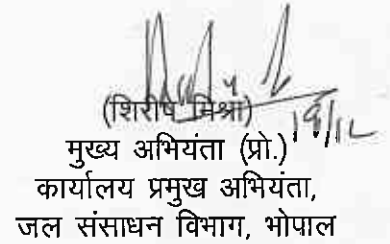 (शिरीष मिश्रा)
19/12
मुख्य अभियंता (प्रो.)
कार्यालय प्रमुख अभियंता,
जल संसाधन विभाग, भोपाल